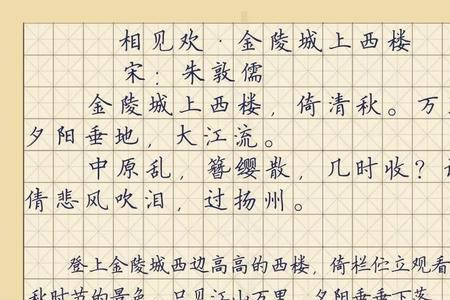 相见欢·金陵城上西楼
宋：朱敦儒
金陵城上西楼，倚清秋。万
夕阳垂地，大江流。
中原乱，簪缨散，几时收？
倩悲风吹泪，过扬州。
登上金陵城西边高高的西楼，倚栏伫立观看
秋时节的景色。只见江山万里，夕阳垂垂下落